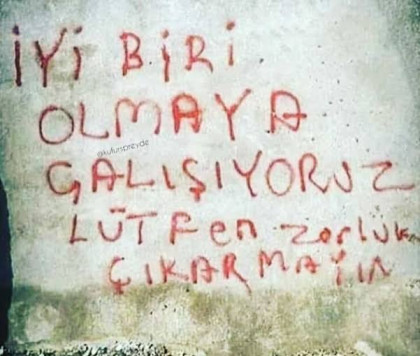 İYİ BİRİ
OLMAYA
@kufursprevde
ÇALIŞIYORUZ
LÜTFen zorluk
ÇIKARMAYIN